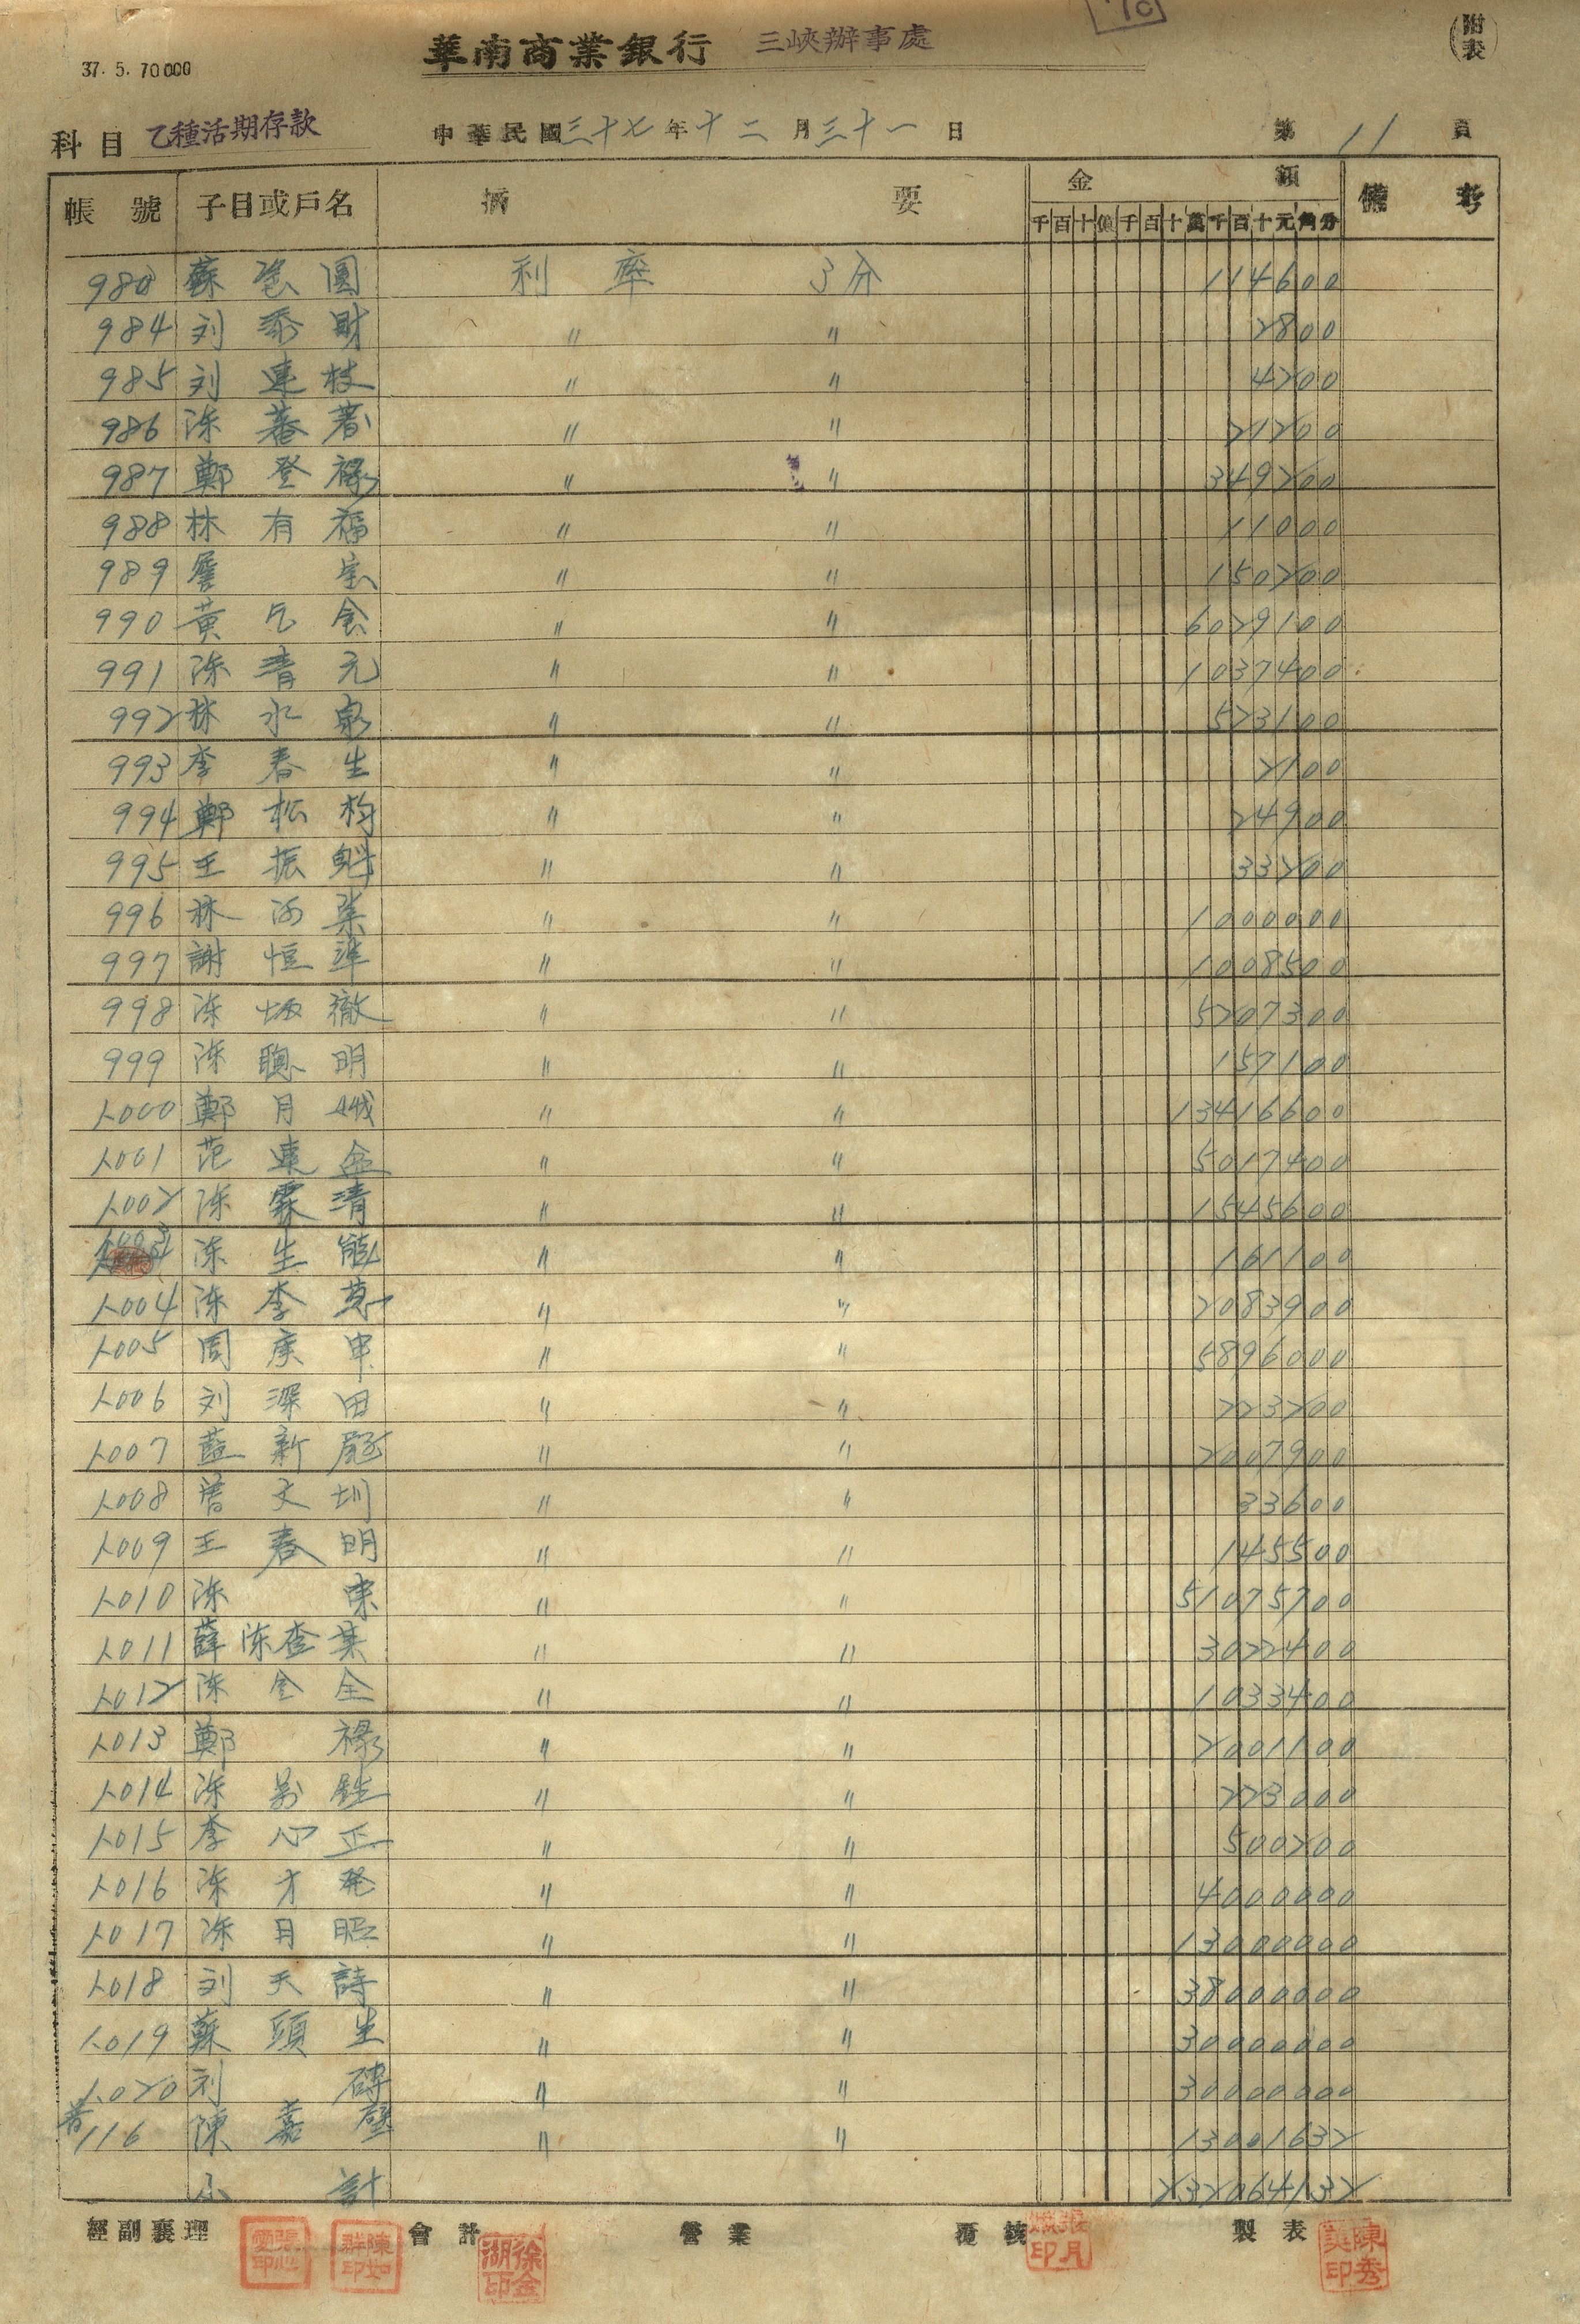 37. 5. 70000
華南商業銀行 三峽辦事處
(附表)
科目 乙種活期存款 中華民國三十七年十二月三十一日 第11頁
帳號 子目或戶名 摘要 金額 備考
千百十億千百十萬千百十元角分
980 蘇 圓 利率 3分 114600
984 刘泰財 〃 〃 2800
985 刘連枝 〃 〃 4200
986 陈蕃薯 〃 〃 21200
987 鄭登祿 〃 〃 349200
988 林有福 〃 〃 11000
989 詹宗 〃 〃 150200
990 黃乞食 〃 〃 6029100
991 陈清元 〃 〃 1037400
992 林水泉 〃 〃 523100
993 李春生 〃 〃 2100
994 鄭松柏 〃 〃 24900
995 王振魁 〃 〃 33200
996 林 〃 〃 1000000
997 謝恒 〃 〃 1008500
998 陈 徹 〃 〃 5207300
999 陈聰明 〃 〃 157100
1000 鄭月娥 〃 〃 13416600
1001 范連益 〃 〃 5017400
1002 陈霖清 〃 〃 1545600
1003 陈生能 〃 〃 161100
1004 陈李 〃 〃 2083900
1005 周庚申 〃 〃 5896000
1006 刘深田 〃 〃 223200
1007 藍新 〃 〃 2007900
1008 曾文圳 〃 〃 33600
1009 王春明 〃 〃 145500
1010 陈東 〃 〃 51075700
1011 薛陈查某 〃 〃 3022400
1012 陈金全 〃 〃 1033400
1013 鄭祿 〃 〃 2001100
1014 陈 〃 〃 223000
1015 李心正 〃 〃 500200
1016 陈才発 〃 〃 4000000
1017 陈月昭 〃 〃 13000000
1018 刘天詩 〃 〃 38000000
1019 蘇頭生 〃 〃 30000000
1020 刘磚 〃 〃 30000000
普116 陳嘉壁 〃 〃 13001632
小計 232064132
經副襄理 會計 營業 覆核 製表
陳如群印
徐金湖印
陳秀英印